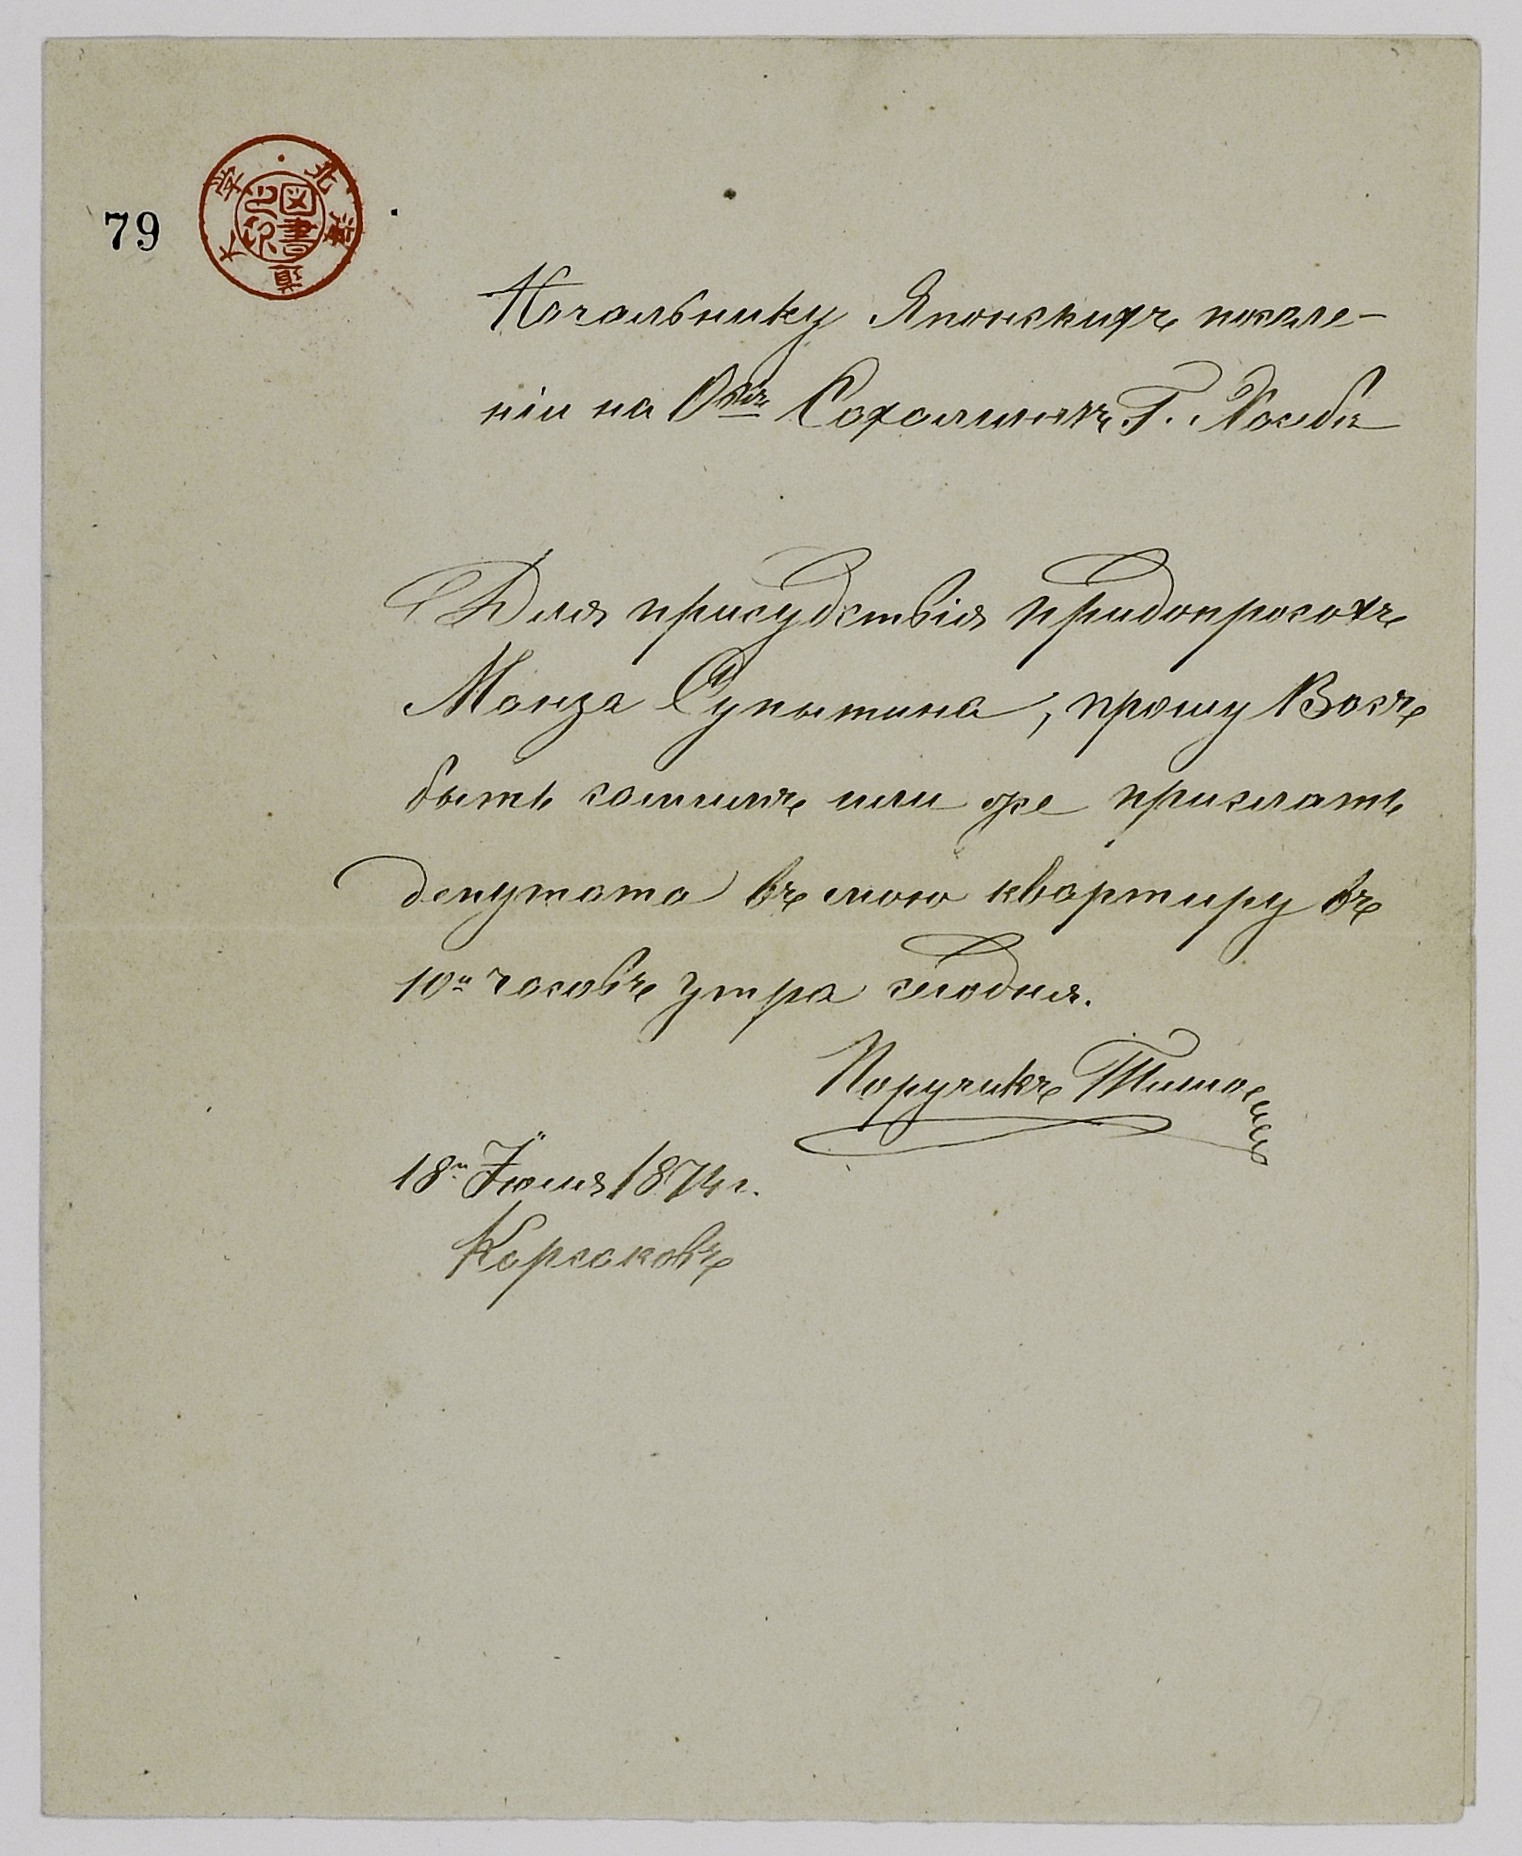 79
北海道大學
図書之印
Начальнику Японскихъ поселе-
ніи на О-вѣ Сахалинѣ Г.
Для присудствія придопросахъ
Манза Супытина, прошу Васъ
быть самимъ или же прислать
депутата въ мою квартиру въ
10ч часовъ утра сегодня.
Поручикъ
18го Іюня 1874 г.
Корсаковъ